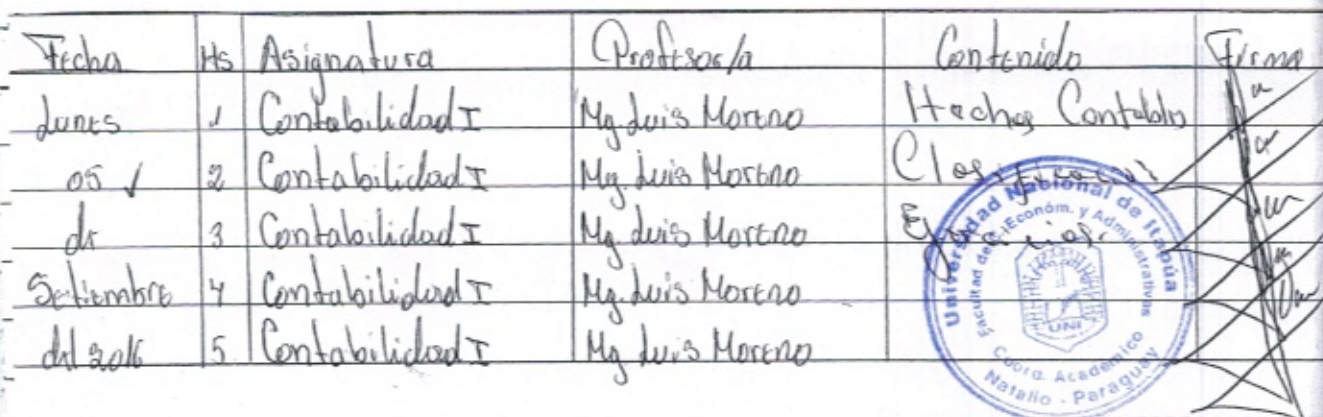 Fecha Hs Asignatura Profesor/a Contenido Firma
Lunes 1 Contabilidad I Mg. Luis Moreno Hechos Contables
05 ✓ 2 Contabilidad I Mg. Luis Moreno Clasificación
de 3 Contabilidad I Mg. Luis Moreno Ejercicios.
Setiembre 4 Contabilidad I Mg. Luis Moreno
del 2016 5 Contabilidad I Mg. Luis Moreno
Universidad Nacional de Itapúa
Facultad de C. Económ. y Administrativas
UNI
Coord. Académico
Natalio - Paraguay